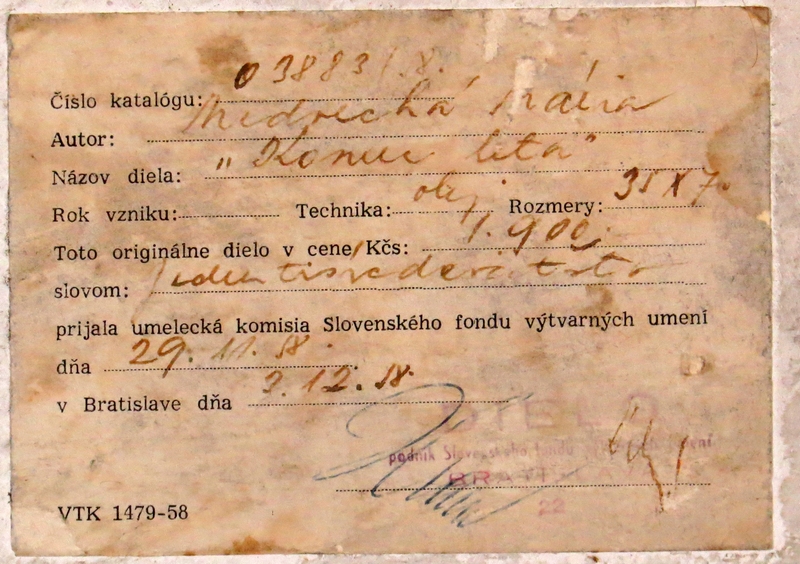 Číslo katalógu: 03883/.8.
Autor: Medvecká Mária
Názov diela: „Koniec leta"
Rok vzniku: Technika: olej Rozmery: 35 X 7
Toto originálne dielo v cene Kčs: 1.900
slovom: Jedentisícdeväťsto
prijala umelecká komisia Slovenského fondu výtvarných umení
dňa 29. 11. 58.
v Bratislave dňa 3. 12. 58.
DIELO
podnik Slovenského fondu výtvarných umení
BRATISLAVA
22
VTK 1479-58